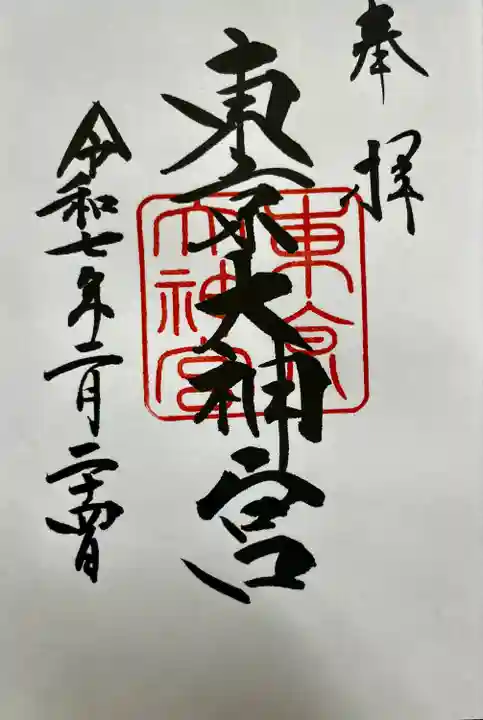 奉拝
東京大神宮
東京大神宮
令和七年十二月二十四日